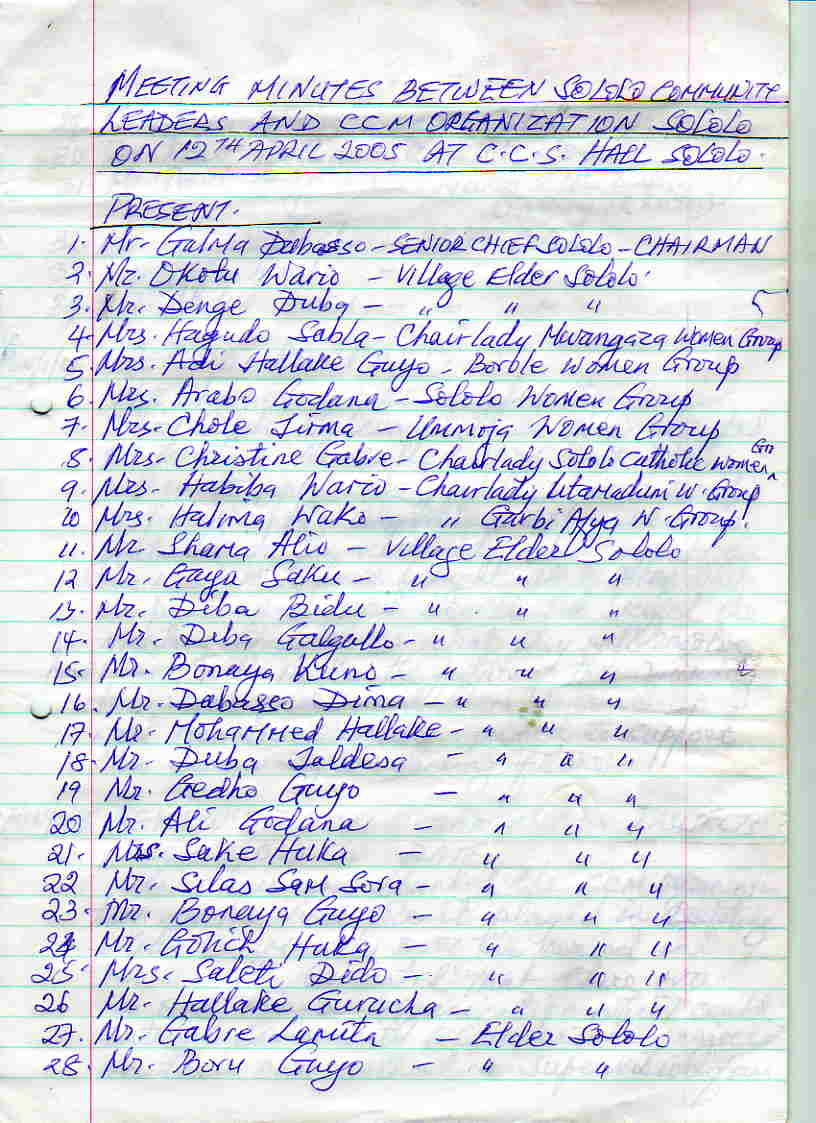 MEETING MINUTES BETWEEN SOLOLO COMMUNITY
LEADERS AND CCM ORGANIZATION SOLOLO
ON 12TH APRIL 2005 AT C.C.S. HALL SOLOLO.
PRESENT.
1. Mr. Galma Dabasso - SENIOR CHIEF SOLOLO - CHAIRMAN
2. Mr. Okotu Wario - Village Elder Sololo.
3. Mr. Denge Duba - " " "
4. Mrs. Hagudo Sabla - Chairlady Mwangaza Women Group
5. Mrs. Adi Hallake Guyo - Borole Women Group
6. Mrs. Arabo Godana - Sololo Women Group
7. Mrs. Chole Jirma - Ummoja Women Group
8. Mrs. Christine Gabre - Chairlady Sololo Catholic Women Gro
9. Mrs. Habiba Wario - Chairlady Utamaduni W. Group
10 Mrs. Halima Wako - " Garbi Afya W. Group.
11. Mr Shama Alio - Village Elder Sololo
12 Mr. Gaya Saku - " " "
13. Mr. Diba Bidu - " " "
14. Mr. Diba Galgallo - " " "
15. Mr. Bonaya Kuno - " " "
16. Mr. Dabasso Dima - " " "
17. Mr. Mohammed Hallake - " " "
18. Mr. Duba Jaldesa - " " "
19 Mr. Gedho Guyo - " " "
20 Mr. Ali Godana - " " "
21. Mrs. Sake Huka - " " "
22 Mr. Silas Sam Sora - " " "
23. Mr. Bonaya Guyo - " " "
24 Mr. Golich Huka - " " "
25. Mrs. Saleti Dido - " " "
26 Mr. Hallake Gurucha - " " "
27. Mr. Gabre Lamuta - Elder Sololo
28. Mr. Boru Guyo - " "